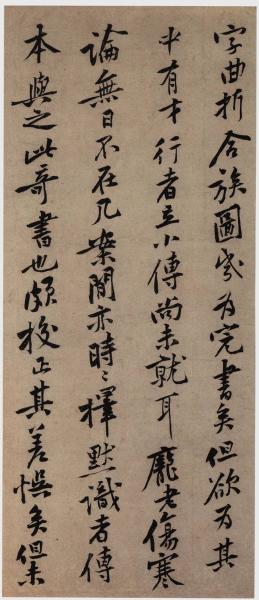 字曲折合族圖歲为完書矣但欲为其
中有才行者立小傳尚未就耳龐老傷寒
論無日不在几案閒亦時〻擇默識者傳
本與之此奇書也頗校正其差悞矣但未